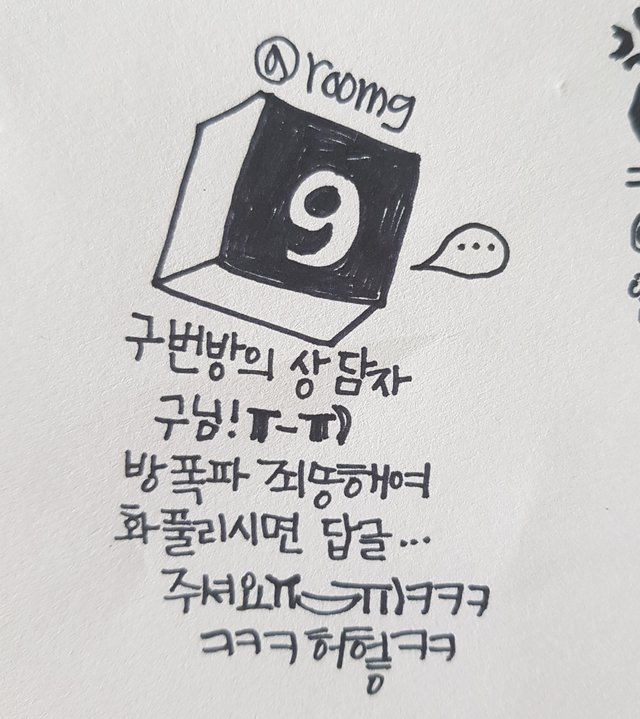 @room9
9
...
구번방의 상담자
구님!ㅠ-ㅠ)
방폭파 죄띵해여
화풀리시면 답글...
주셔요ㅠ‿ㅠ)ㅋㅋㅋ
ㅋㅋㅋ허헝ㅋㅋ